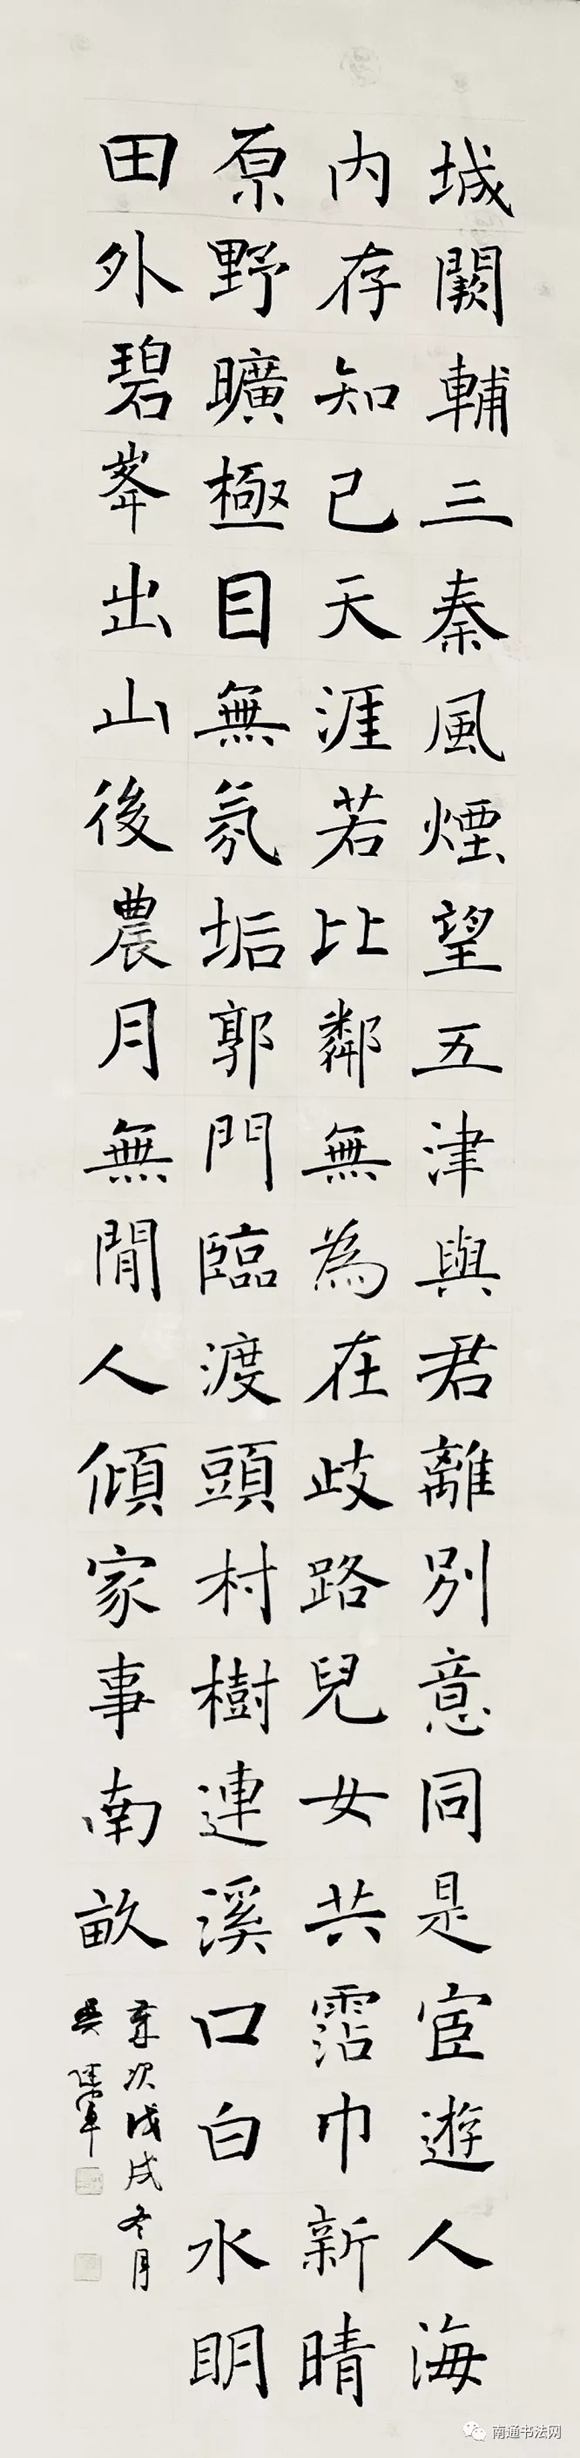 城闕輔三秦風煙望五津與君離別意同是宦遊人海
内存知己天涯若比鄰無為在歧路兒女共霑巾新晴
原野曠極目無氛垢郭門臨渡頭村樹連溪口白水眀
田外碧峯出山後農月無閒人傾家事南畝
歲次戊戌冬月
吳
南通书法网